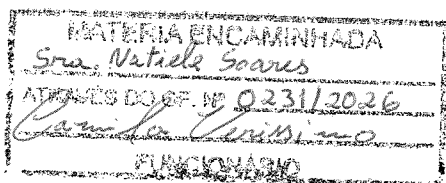 MATÉRIA ENCAMINHADA
Sra. Natiele Soares
ATRAVÉS DO OF. Nº 0231/2026
Camila Verissimo
FUNCIONÁRIO